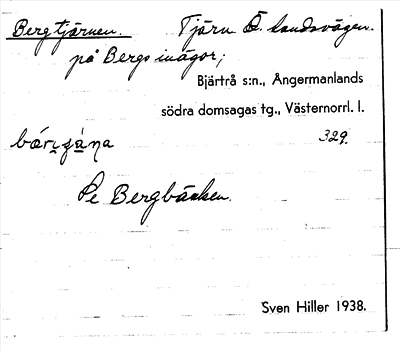 Bergtjärnen. Tjärn Ö. landsvägen.
på Bergs inägor;
Bjärtrå s:n., Ångermanlands
södra domsagas tg., Västernorrl. l.
329.
Pe Bergbäcken.
Sven Hiller 1938.